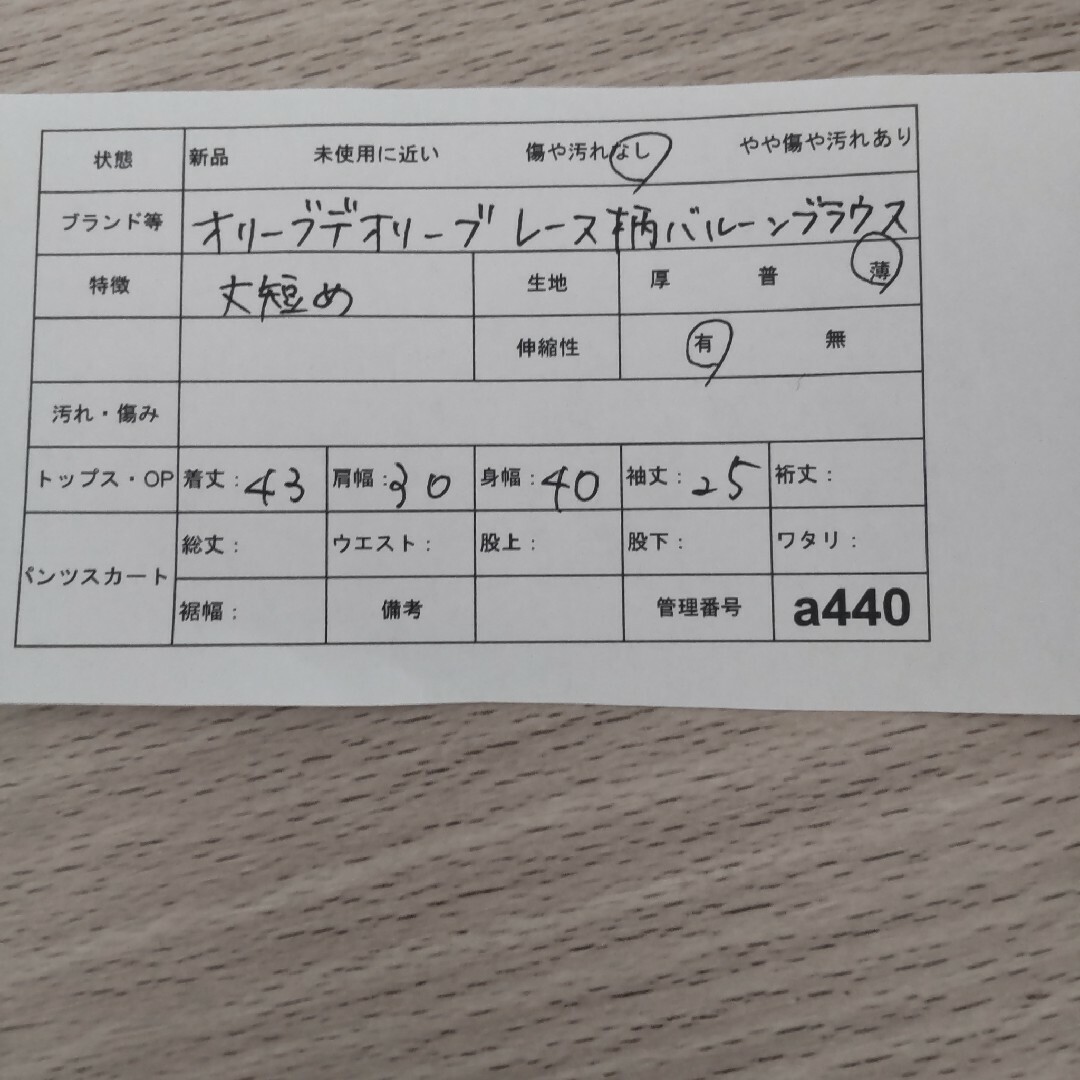 状態 新品 未使用に近い 傷や汚れなし やや傷や汚れあり
ブランド等 オリーブデオリーブ レース柄バルーンブラウス
特徴 丈短め 生地 厚 普 薄
伸縮性 有 無
汚れ・傷み
トップス・OP 着丈:43 肩幅:30 身幅:40 袖丈:25 裄丈:
パンツスカート 総丈: ウエスト: 股上: 股下: ワタリ:
裾幅: 備考 管理番号 a440